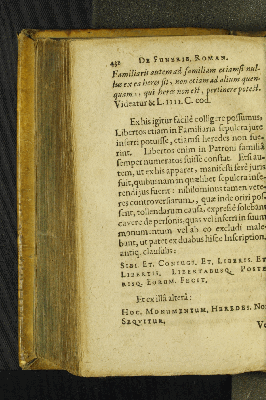 432 DE FUNERIB. ROMAN.
Familiaris autem ad familiam etiamsi nul-
lus ex ea heres sit, non etiam ad alium quen-
quam, qui heres non est, pertinere potest.
Videatur & L. IIII. C. eod.
Ex his igitur facilè colligere possumus,
Libertos etiam in Familiaria sepulcra jure
inferri potuisse, etiamsi heredes non fue-
rint. Libertos enim in Patroni familiâ
semper numeratos fuisse constat. Etsi au-
tem, ut ex his apparet, manifesti serè juris
fuit, quibusnam in quælibet sepulcra infe-
rendi jus fuerit: nihilominus tamen vete-
res controversiarum, quæ inde oriri pos-
sent, tollendarum causa, expressè solebant
cavere de personis, quas vel inferri in suum
monumentum vel ab eo excludi male-
bant, ut patet ex duabus hisce Inscription.
antiq. clausulis:
SIBI ET. CONIUGI. ET. LIBERIS. ET
LIBERTIS. LIBERTABUSQ. POSTE
RISQ. EORUM. FECIT.
Et ex illâ alterâ:
HOC. MONUMENTUM. HEREDES. NO
SEQUITUR.